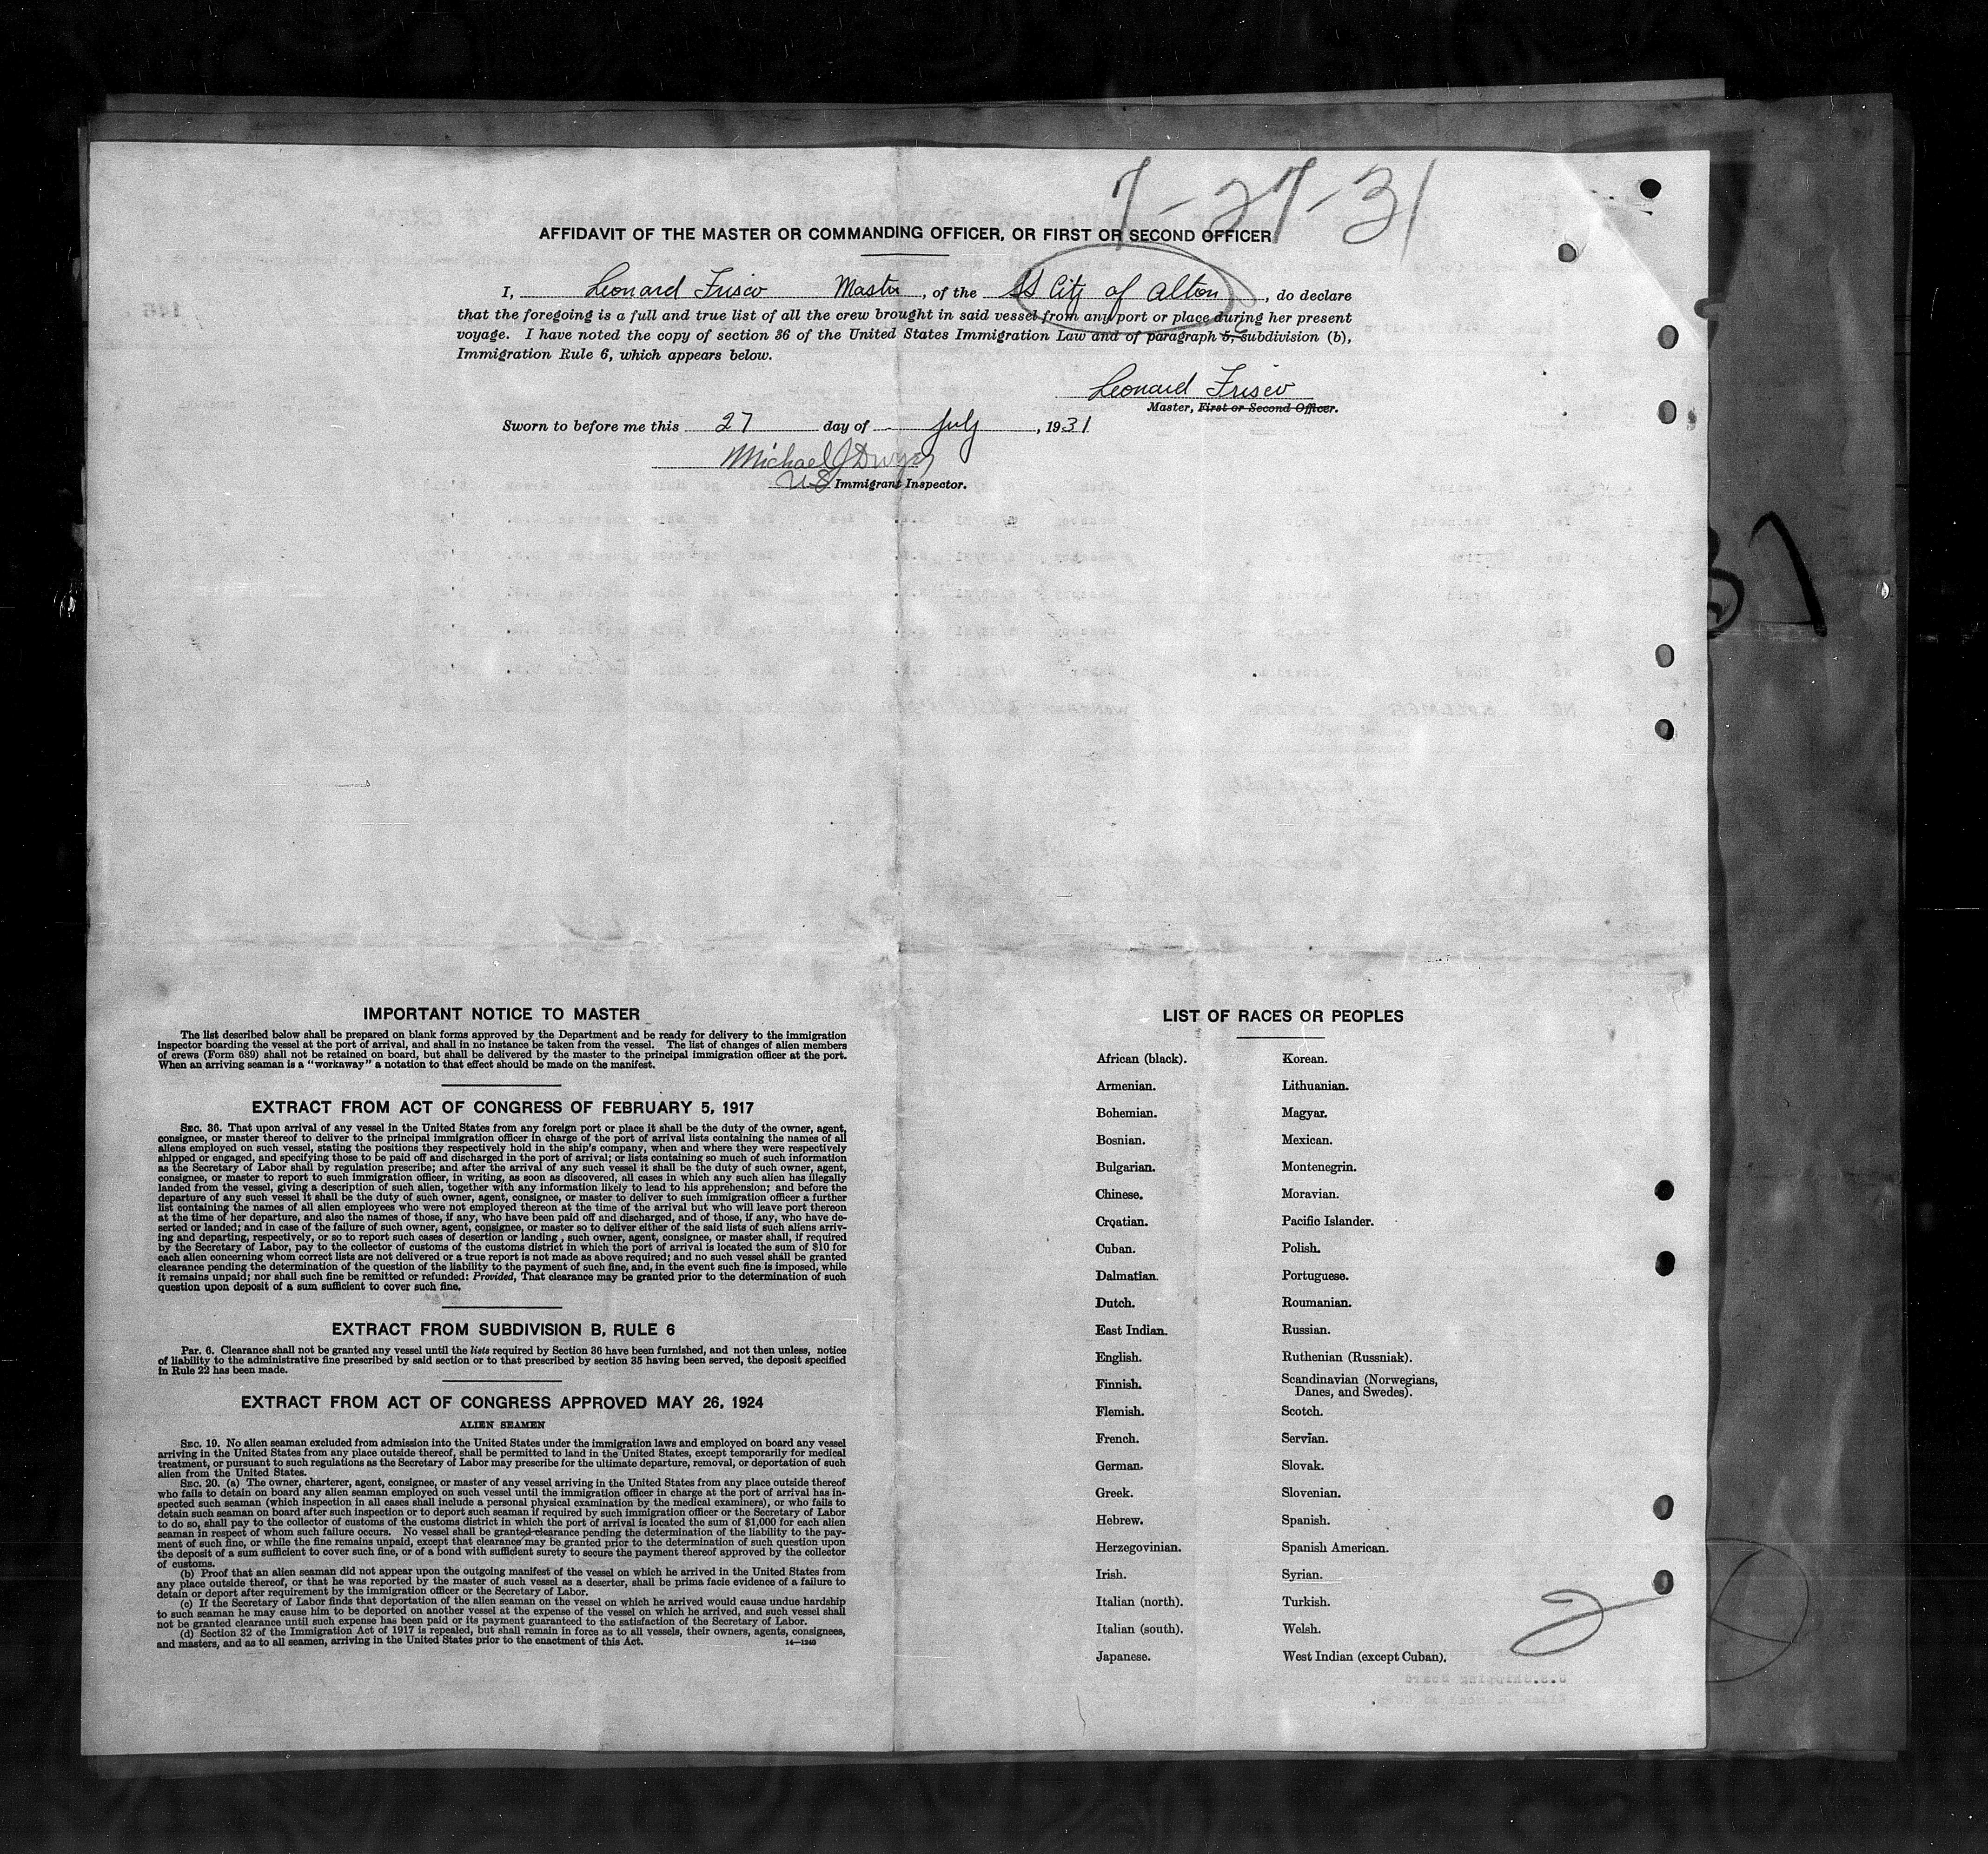 7-27-31
AFFIDAVIT OF THE MASTER OR COMMANDING OFFICER, OR FIRST OR SECOND OFFICER
I, Leonard Frisco Master, of the SS City of Alton, do declare
that the foregoing is a full and true list of all the crew brought in said vessel from any port or place during her present
voyage. I have noted the copy of section 36 of the United States Immigration Law and of paragraph 5, subdivision (b),
Immigration Rule 6, which appears below.
Leonard Frisco
Master, First or Second Officer.
Sworn to before me this 27 day of July, 1931
Michael J Dwyer
US Immigrant Inspector.
IMPORTANT NOTICE TO MASTER
The list described below shall be prepared on blank forms approved by the Department and be ready for delivery to the immigration
inspector boarding the vessel at the port of arrival, and shall in no instance be taken from the vessel. The list of changes of alien members
of crews (Form 689) shall not be retained on board, but shall be delivered by the master to the principal immigration officer at the port.
When an arriving seaman is a "workaway" a notation to that effect should be made on the manifest.
EXTRACT FROM ACT OF CONGRESS OF FEBRUARY 5, 1917
SEC. 36. That upon arrival of any vessel in the United States from any foreign port or place it shall be the duty of the owner, agent,
consignee, or master thereof to deliver to the principal immigration officer in charge of the port of arrival lists containing the names of all
aliens employed on such vessel, stating the positions they respectively hold in the ship's company, when and where they were respectively
shipped or engaged, and specifying those to be paid off and discharged in the port of arrival; or lists containing so much of such information
as the Secretary of Labor shall by regulation prescribe; and after the arrival of any such vessel it shall be the duty of such owner, agent,
consignee, or master to report to such immigration officer, in writing, as soon as discovered, all cases in which any such alien has illegally
landed from the vessel, giving a description of such alien, together with any information likely to lead to his apprehension; and before the
departure of any such vessel it shall be the duty of such owner, agent, consignee, or master to deliver to such immigration officer a further
list containing the names of all alien employees who were not employed thereon at the time of the arrival but who will leave port thereon
at the time of her departure, and also the names of those, if any, who have been paid off and discharged, and of those, if any, who have de-
serted or landed; and in case of the failure of such owner, agent, consignee, or master so to deliver either of the said lists of such aliens arriv-
ing and departing, respectively, or so to report such cases of desertion or landing , such owner, agent, consignee, or master shall, if required
by the Secretary of Labor, pay to the collector of customs of the customs district in which the port of arrival is located the sum of $10 for
each alien concerning whom correct lists are not delivered or a true report is not made as above required; and no such vessel shall be granted
clearance pending the determination of the question of the liability to the payment of such fine, and, in the event such fine is imposed, while
it remains unpaid; nor shall such fine be remitted or refunded: Provided, That clearance may be granted prior to the determination of such
question upon deposit of a sum sufficient to cover such fine.
EXTRACT FROM SUBDIVISION B, RULE 6
Par. 6. Clearance shall not be granted any vessel until the lists required by Section 36 have been furnished, and not then unless, notice
of liability to the administrative fine prescribed by said section or to that prescribed by section 35 having been served, the deposit specified
in Rule 22 has been made.
EXTRACT FROM ACT OF CONGRESS APPROVED MAY 26, 1924
ALIEN SEAMEN
SEC. 19. No alien seaman excluded from admission into the United States under the immigration laws and employed on board any vessel
arriving in the United States from any place outside thereof, shall be permitted to land in the United States, except temporarily for medical
treatment, or pursuant to such regulations as the Secretary of Labor may prescribe for the ultimate departure, removal, or deportation of such
alien from the United States.
SEC. 20. (a) The owner, charterer, agent, consignee, or master of any vessel arriving in the United States from any place outside thereof
who fails to detain on board any alien seaman employed on such vessel until the immigration officer in charge at the port of arrival has in-
spected such seaman (which inspection in all cases shall include a personal physical examination by the medical examiners), or who fails to
detain such seaman on board after such inspection or to deport such seaman if required by such immigration officer or the Secretary of Labor
to do so, shall pay to the collector of customs of the customs district in which the port of arrival is located the sum of $1,000 for each alien
seaman in respect of whom such failure occurs. No vessel shall be granted clearance pending the determination of the liability to the pay-
ment of such fine, or while the fine remains unpaid, except that clearance may be granted prior to the determination of such question upon
the deposit of a sum sufficient to cover such fine, or of a bond with sufficient surety to secure the payment thereof approved by the collector
of customs.
(b) Proof that an alien seaman did not appear upon the outgoing manifest of the vessel on which he arrived in the United States from
any place outside thereof, or that he was reported by the master of such vessel as a deserter, shall be prima facie evidence of a failure to
detain or deport after requirement by the immigration officer or the Secretary of Labor.
(c) If the Secretary of Labor finds that deportation of the alien seaman on the vessel on which he arrived would cause undue hardship
to such seaman he may cause him to be deported on another vessel at the expense of the vessel on which he arrived, and such vessel shall
not be granted clearance until such expense has been paid or its payment guaranteed to the satisfaction of the Secretary of Labor.
(d) Section 32 of the Immigration Act of 1917 is repealed, but shall remain in force as to all vessels, their owners, agents, consignees,
and masters, and as to all seamen, arriving in the United States prior to the enactment of this Act. 14—1240
LIST OF RACES OR PEOPLES
African (black). Korean.
Armenian. Lithuanian.
Bohemian. Magyar.
Bosnian. Mexican.
Bulgarian. Montenegrin.
Chinese. Moravian.
Croatian. Pacific Islander.
Cuban. Polish.
Dalmatian. Portuguese.
Dutch. Roumanian.
East Indian. Russian.
English. Ruthenian (Russniak).
Finnish. Scandinavian (Norwegians,
Danes, and Swedes).
Flemish. Scotch.
French. Servian.
German. Slovak.
Greek. Slovenian.
Hebrew. Spanish.
Herzegovinian. Spanish American.
Irish. Syrian.
Italian (north). Turkish.
Italian (south). Welsh.
Japanese. West Indian (except Cuban).
2